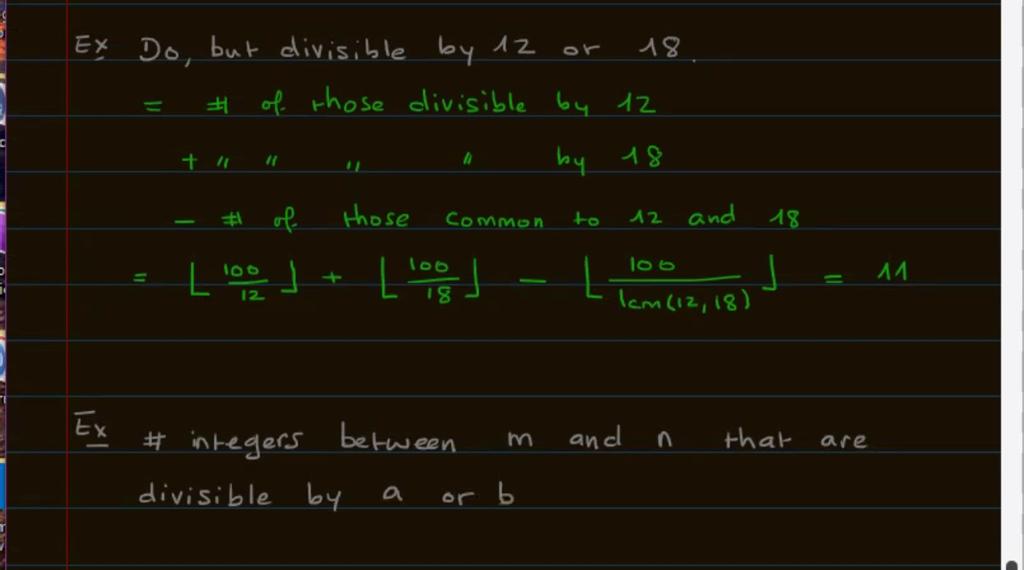 Ex Do, but divisible by 12 or 18.
= # of those divisible by 12
+ " " " " by 18
- # of those common to 12 and 18
= ⌊100/12⌋ + ⌊100/18⌋ - ⌊100/lcm(12,18)⌋ = 11
Ex # integers between m and n that are
divisible by a or b